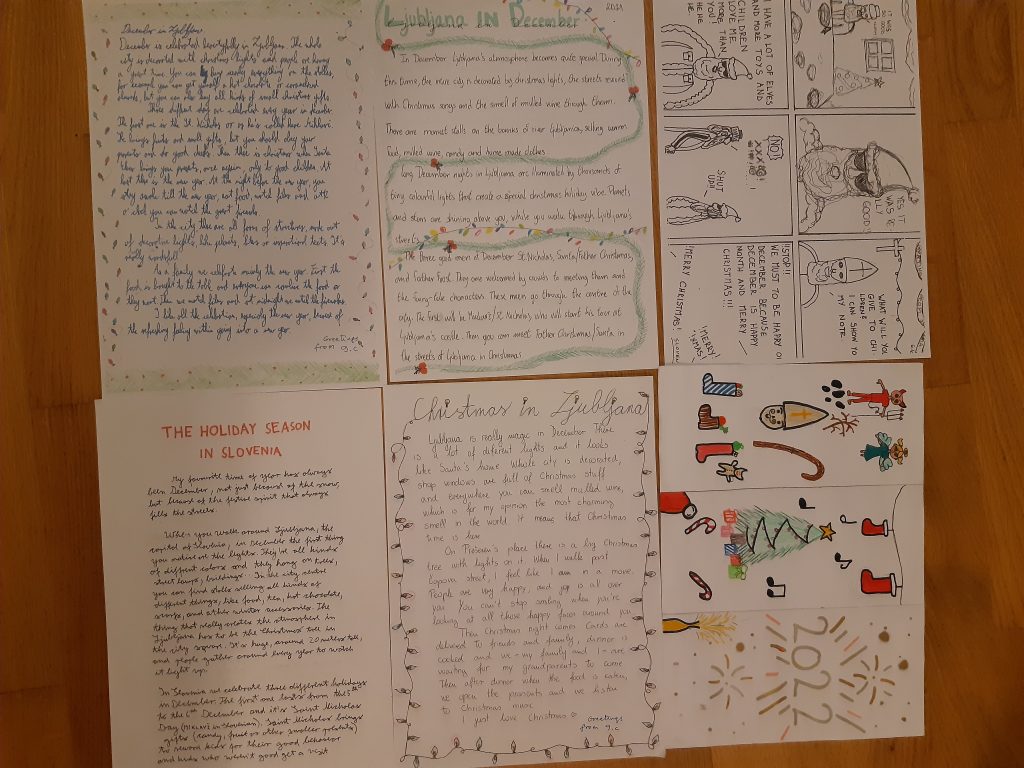 December in Ljubljana
December is celebrated beautifully in Ljubljana. The whole
city is decorated with christmas lights and people are having
a great time. You can buy nearly everything on the stalls,
for example you can get yourself a hot chocolate or
but you can also find all kinds of small christmas gifts.
Three different days are celebrated every year in
The first one is the St. Nicholas or as he's called here Miklavž.
He brings fruits and small gifts, but you should obey your
parents and do good deeds. Then this is christmas when Santa
Claus brings you presents, once again, only to good children. At
last this is the new year. At the night before the new year, you
stay awake till the new year, eat food, watch films and
or what you may watch the great fireworks.
In the city there are all form of structures, made out
of decorative lights like planets, or inspirational texts. It's
really wonderful!
As a family we celebrate mainly the new year. First the
food is brought to the table, and everyone can consume the food or
they want. Then we watch films and at midnight we watch the fireworks.
I like all the celebration, especially the new year, because of
the refreshing feeling within going into a new year.
Greetings
from 9.c
Ljubljana IN December
2021
In December Ljubljana's atmosphere becomes quite special. During
this time, the nice city is decorated by christmas lights, the streets resound
with Christmas songs and the smell of mulled wine through them.
There are market stalls on the banks of river Ljubljanica, selling warm
food, mulled wine, candy and home made clothes.
Long December nights in Ljubljana are illuminated by thousands of
tiny colourful lights that create a special christmas holiday vibe. Planets
and stars are shining above you, while you walk through Ljubljana's
streets.
The three good men of December St. Nicholas, Santa, Father Christmas,
and Father Frost. They are welcomed by crowds to meeting them and
the fairy-tale characters. These men go through the centre of the
city. The first will be Miklavž/St. Nicholas, who will start his tour at
Ljubljana's castle. Then you can meet Father Christmas/Santa in
the streets of Ljubljana in Christmas.
I HAVE A LOT OF ELVES
AND MORE TOYS AND
CHILDREN
LOVE ME
MORE THAN
YOU!
HE HE
NO!
SHUT
UP!!
YES IT
WAS
GOOD
WHAT WILL YOU
GIVE TO CHI-
LDREN?
I CAN SHOW YO
MY NOTE.
!!STOP!!
WE MUST TO BE HAPPY
DECEMBER BECAUSE
DECEMBER IS HAPPY
MONTH AND MERRY
CHRISTMAS!!!
!MERRY CHRISTMAS!
!!MERRY
XMAS!!
THE HOLIDAY SEASON
IN SLOVENIA
My favourite time of year has always
been December, not just because of the snow,
but because of the festive spirit that always
fills the streets.
When you walk around Ljubljana, the
capital of Slovenia, in December the first thing
you notice are the lights. They're all kinds
of different colors and they hang on trees,
street lamps, buildings... In the city centre
you can find stalls selling all kinds of
different things, like food, tea, hot chocolate,
scarfs, and other winter accessories. The
thing that really creates the atmosphere in
Ljubljana has to be the Christmas tree in
the city square. It's huge, around 20 meters tall,
and people gather around every year to watch
it light up.
In Slovenia we celebrate three different holidays
in December. The first one lasts from the 5th
to the 6th December and it's Saint Nicholas
Day (Miklavž in Slovenian). Saint Nicholas brings
gifts (candy, fruit or other smaller presents)
to reward kids for their good behavior
and kids who weren't good get a visit
Christmas in Ljubljana
Ljubljana is really magic in December. There
is a lot of different lights and it looks
like Santa's home. Whole city is decorated,
shop windows are full of Christmas stuff
and everywhere you can smell mulled wine,
which is for my opinion the most charming
smell in the world. It means that Christmas
time is here.
On Prešeren's place there is a big Christmas
tree with lights on it. When I walk past
Copova street, I feel like I am in a movie.
People are very happy, and joy is all over
you. You can't stop smiling when you're
looking at all those happy faces around you.
Then Christmas night comes. Cards are
delivered to friends and family, dinner is
cooked and we - my family and I - are
waiting for my grandparents to come.
Then after dinner when the food is eaten,
we open the presents and we listen
to Christmas music.
I just love Christmas
Greetings
from 9.c
2022